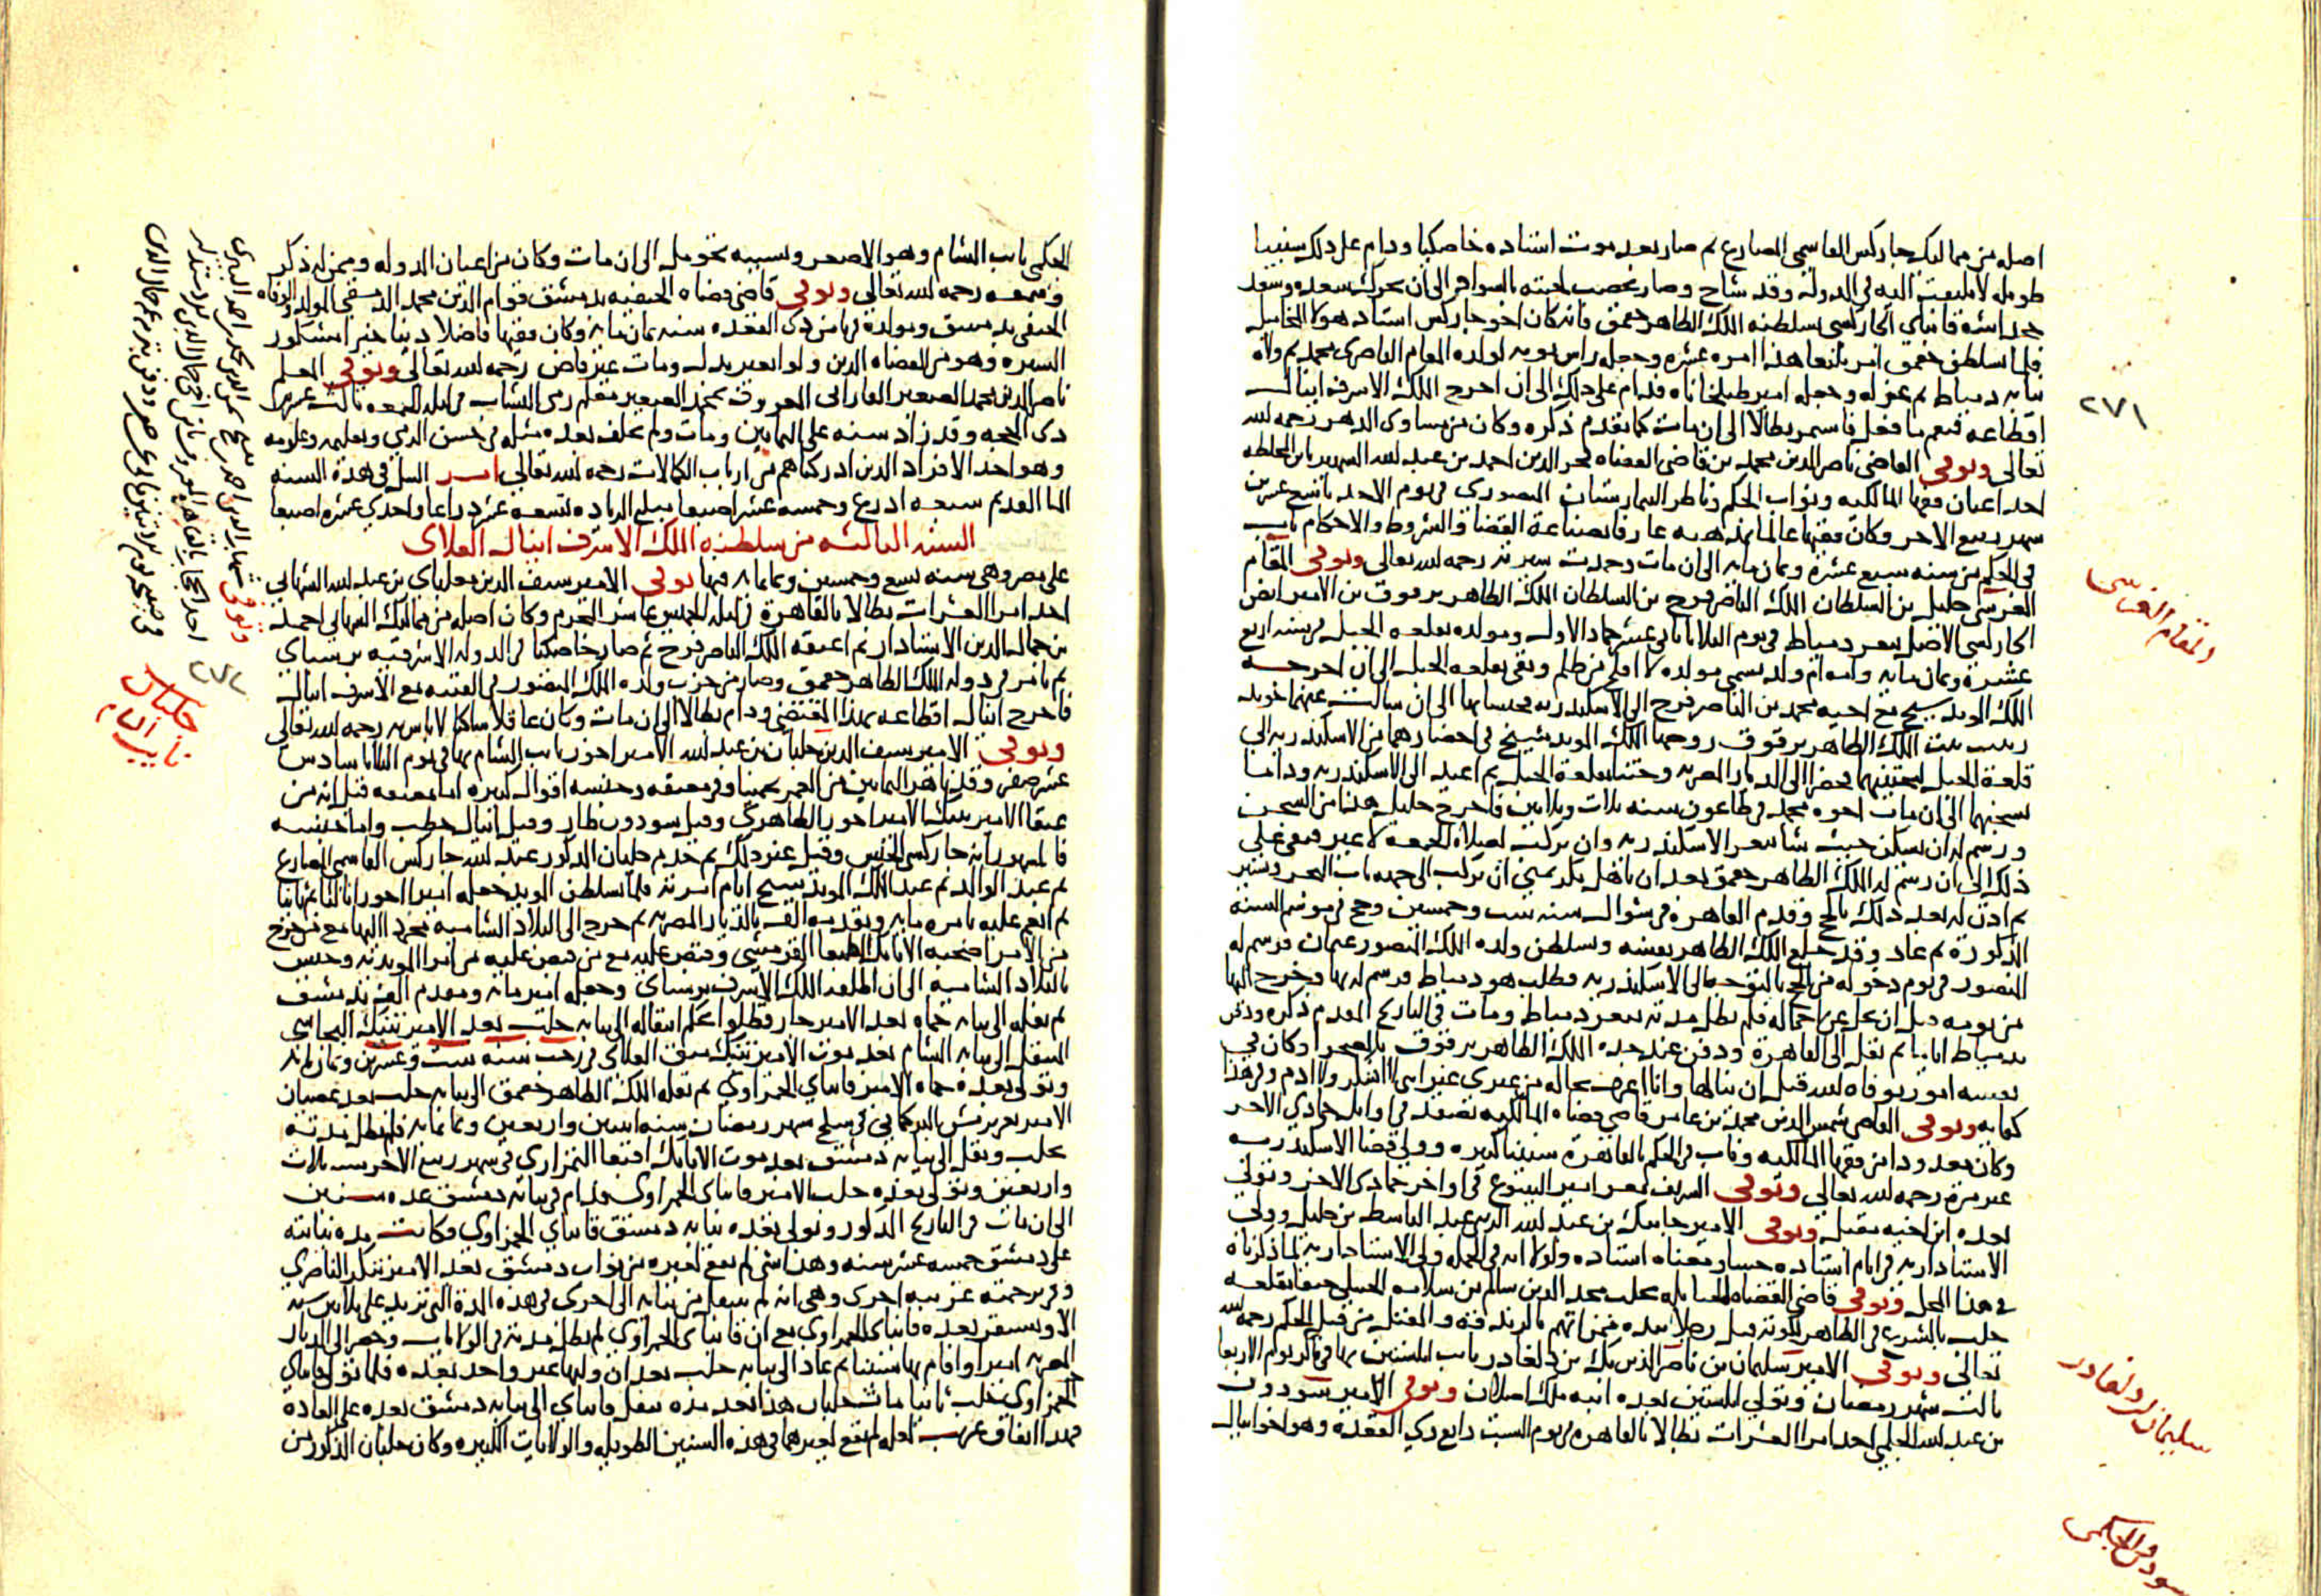 اصله من مماليك جاركس القاسمي المصارع ثم صار بعد موت استاده خاصكيا ودام على ذلك سنينا
طويله لا يلتفت اليه في الدولة وقد شاخ وصار يخضب لحيته بالسواد الى ان تحرك سعده وسعد
خجداشه قانباي الجاركسي بسلطنه الملك الظاهر جقمق فانه كان اخو جاركس استاد هولا الخامله
فلما تسلطن جقمق امر يلبغا هذا امره عشره وجعله راس نوبه لولده المقام الناصري محمد ثم ولاه
نيابه دمياط ثم عزله وجعله امير طبلخاناه فدام على ذلك الى ان اخرج الملك الاشرف اينال
اقطاعه فنعم ما فعل فاستمر بطالا الى ان مات كما تقدم ذكره وكان من مساوى الدهر رحمه الله
تعالى وتوفى القاضي ناصر الدين محمد بن قاضي القضاه فخر الدين احمد بن عبد الله الشهير بابن المخلطه
احد اعيان فقها المالكيه ونواب الحكم وناظر البيمارستان المنصوري في يوم الاحد تاسع عشرين
شهر ربيع الاخر وكان فقيها عالما بمذهبه عارفا بصناعة القضا والشروط والاحكام ناب
في الحكم من سنه سبع عشرة وثمان مايه الى ان مات وحمدت سيرته رحمه الله تعالى وتوفى المقام
الغرسى خليل بن السلطان الملك الناصر فرج بن السلطان الملك الظاهر برقوق بن الامير انص
الجاركسى الاصل بثغر دمياط في يوم الثلاثا ثاني عشر جماد الاول ومولده بقلعه الجبل في سنه اربع
عشرة وثمان مايه وامه ام ولد تسمى مولده لا افلح من ظلم وبقى بقلعه الجبل الى ان اخرجه
الملك المويد شيخ مع اخيه محمد بن الناصر فرج الى الاسكندريه فحبسا بها الى ان سالت عنهما خوند
زينب بنت الملك الظاهر برقوق زوجها الملك المويد شيخ في احضارهما من الاسكندريه الى
قلعة الجبل لتختنهما فحضرا الى الديار المصريه وختنا بقلعة الجبل ثم اعيدا الى الاسكندريه وداما
بسجنهما الى ان مات اخوه محمد في طاعون سنه ثلاث وثلاثين فاخرج خليل هذا من السجن
ورسم له ان يسكن حيث شا بثغر الاسكندريه وان يركب لصلاة الجمعه لا غير فبقى على
ذلك الى ان رسم له الملك الظاهر جقمق بعد ان تاهل بكريمتي ان يركب الى جهه باب البحر ويسير
ثم اذن له بعد ذلك بالحج وقدم القاهرة في شوال سنه ست وخمسين وحج في موسم السنه
المذكورة ثم عاد وقد خلع الملك الظاهر بنفسه وتسلطن ولده الملك المنصور عثمان فرسم له
المنصور في يوم دخوله من الحج بالتوجه الى الاسكندريه فطلب هو دمياط فرسم له بها وخرج اليها
من يومه قبل ان يحل عن احماله فلم تطل مدته بثغر دمياط ومات في التاريخ المقدم ذكره ودفن
بدمياط اياما ثم نقل الى القاهرة ودفن عند جده الملك الظاهر برقوق بالصحرا وكان في
نفسه امور توفاه الله قبل ان ينالها وانا اعرف بحاله من غيرى غير اني لا اشكر ولا اذم وفي هذا
كفايه وتوفى القاضي شمس الدين محمد بن عامر قاضي قضاه المالكيه بصفد في اوايل جمادي الاخر
وكان معدودا من فقها المالكيه وناب في الحكم بالقاهرة سنينا كثيره وولي قضا الاسكندريه
غير مرة رحمه الله تعالى وتوفى الشريف معز امير الينبوع في اواخر جمادى الاخر وتولى
بعده ابن اخيه مقبل وتوفى الامير جانبك بن عبد الله الزيني عبد الباسط بن خليل وولي
الاستاداريه في ايام استاده حسا ومعناه استاده ولولا انه في الجمله ولي الاستاداريه لما ذكرناه
في هذا المحل وتوفى قاضي القضاه الحنابله بحلب مجد الدين سالم بن سلامه الحنبلي خنقا بقلعه
حلب بالشرع في الظاهر لكونه قتل رجلا بيده ممن اتهم بالزندقه والمقتل من قبل الحكم رحمه الله
تعالى وتوفى الامير سليمان بن ناصر الدين بك بن دلغادر نايب ابلستين بها في باكر يوم الاربعا
ثالث شهر رمضان وتولى ابلستين بعده ابنه ملك اصلان وتوفى الامير سودون
بن عبد الله الجكمي احد امرا العشرات بطالا بالقاهره في يوم السبت رابع ذي القعدة وهو اخو اينال
٢٧١
المقام الغرسي
سليمان بن دلغادر
سودون الجكمى
الجكمي نايب الشام وهو الاصغر وبسببه تخومل الى ان مات وكان من اعيان الدوله وممن له ذكر
وسمعه رحمه الله تعالى وتوفى قاضي قضاه الحنفيه بدمشق قوام الدين محمد الدمشقي المولد والوفاه
الحنفي بدمشق ومولده في ثامن ذى القعده سنه ثمان مايه وكان فقيها فاضلا دينا خيرا مشكور
السيره وهو من القضاه الذين ولوا بغير بذل ومات غير قاض رحمه الله تعالى وتوفى المعلم
ناصر الدين محمد الصغير القازانى المعروف بمحمد الصغير معلم رمى النشاب في ليله الجمعه ثالث عشر
ذى الحجه وقد زاد سنه على الثمانين ومات ولم يخلف بعده مثله في حسن الرمي وتعليمه وعلومه
وهو احد الافراد الذين ادركناهم من ارباب الكمالات رحمه الله تعالى امر النيل في هذه السنه
الما القديم سبعه اذرع وخمسه عشر اصبعا مبلغ الزياده تسعه عشر ذراعا واحدي عشره اصبعا
السنه الثالثه من سلطنه الملك الاشرف اينال العلاى
على مصر وهي سنه تسع وخمسين وثمانمايه فيها توفى الامير سيف الدين مغلباي بن عبد الله الشهابي
احد امرا العشرات بطالا بالقاهرة في ليله الخميس عاشر المحرم وكان اصله من مماليك الشهابي احمد
بن جمال الدين الاستادار ثم اعتقه الملك الناصر فرج ثم صار خاصكيا في الدوله الاشرفيه برسباي
ثم تامر في دوله الملك الظاهر جقمق وصار من حزب ولده الملك المنصور في الفتنه مع الاشرف اينال
فاخرج اينال اقطاعه بهذا المقتضى ودام بطالا الى ان مات وكان عاقلا ساكنا لا باس به رحمه الله تعالى
وتوفى الامير سيف الدين جلبان بن عبد الله الامير اخور نايب الشام بها في يوم الثلاثا سادس
عشر صفر وقد ناهز الثمانين من العمر تخمينا وفي معتقه وجنسه اقوال كثيره اما معتقه قيل انه من
عتقا الامير تنبك الامير اخور الظاهري وقيل سودون طاز وقيل اينال حطب واما جنسه
فالمشهور انه جاركسي الجنس وقيل غير ذلك ثم خدم جلبان المذكور عند جاركس القاسمي المصارع
ثم عند الوالد ثم عند الملك المويد شيخ ايام امرته فلما تسلطن المويد جعله امير اخور ثالثا ثم ثانيا
ثم انعم عليه بامره مايه وتقدمه الف بالديار المصريه ثم خرج الى البلاد الشاميه مجردا اليها مع من خرج
من الامرا صحبه الاتابك الطنبغا القرمشى وقبض عليه مع من قبض عليه من امرا المويديه وحبس
بالبلاد الشاميه الى ان اطلقه الملك الاشرف برسباى وجعله امير مايه ومقدم الف بدمشق
ثم نقله الى نيابه حماه بعد الامير جارقطلو بحكم انتقاله الى نيابه حلب بعد الامير تنبك البجاسي
المنتقل الى نيابه الشام بعد موت الامير تنبك ميق العلاى في رجب سنه ست وعشرين وثمان مايه
وتولى بعده حماه الامير قانباي الحمزاوي ثم نقله الملك الظاهر جقمق الى نيابه حلب بعد عصيان
الامير تغري برمش التركماني في سلخ شهر رمضان سنه اثنين واربعين وثمانمايه فلم تطل مدته
بحلب ونقل الى نيابه دمشق بعد موت الاتابك اقبغا التمرازي في شهر ربيع الاخر سنه ثلاث
واربعين وتولى بعده حلب الامير قانباى الحمزاوى فدام في نيابه دمشق عده سنين
الى ان مات في التاريخ المذكور وتولى بعده نيابه دمشق قانباي الحمزاوي وكانت مده نيابته
على دمشق خمسه عشر سنه وهذا شي لم يقع لغيره من نواب دمشق بعد الامير تنكز الناصري
وفي ترجمته غريبه اخرى وهى انه لم ينتقل من نيابه الى اخرى في هذه المدة التي تزيد على ثلاثين سنه
الا ويستقر بعده قانباى الحمزاوي مع ان قانباى الحمزاوي لم تطل مدته في الولايات وحضر الى الديار
المصريه اميرا واقام بها سنينا ثم عاد الى نيابه حلب بعد ان وليها غير واحد بعده فلما تولى قانباي
الحمزاوى حلب ثانيا مات جلبان هذا بعد مده فنقل قانباي الى نيابه دمشق بعده على العاده
فهذا اتفاق غريب لعله لم يقع لغيرهما في هذه السنين الطويله والولايات الكثيره وكان جلبان المذكور من
وتوفى شهاب الدين احمد
٢٧٢
جلبان
نايب الشام